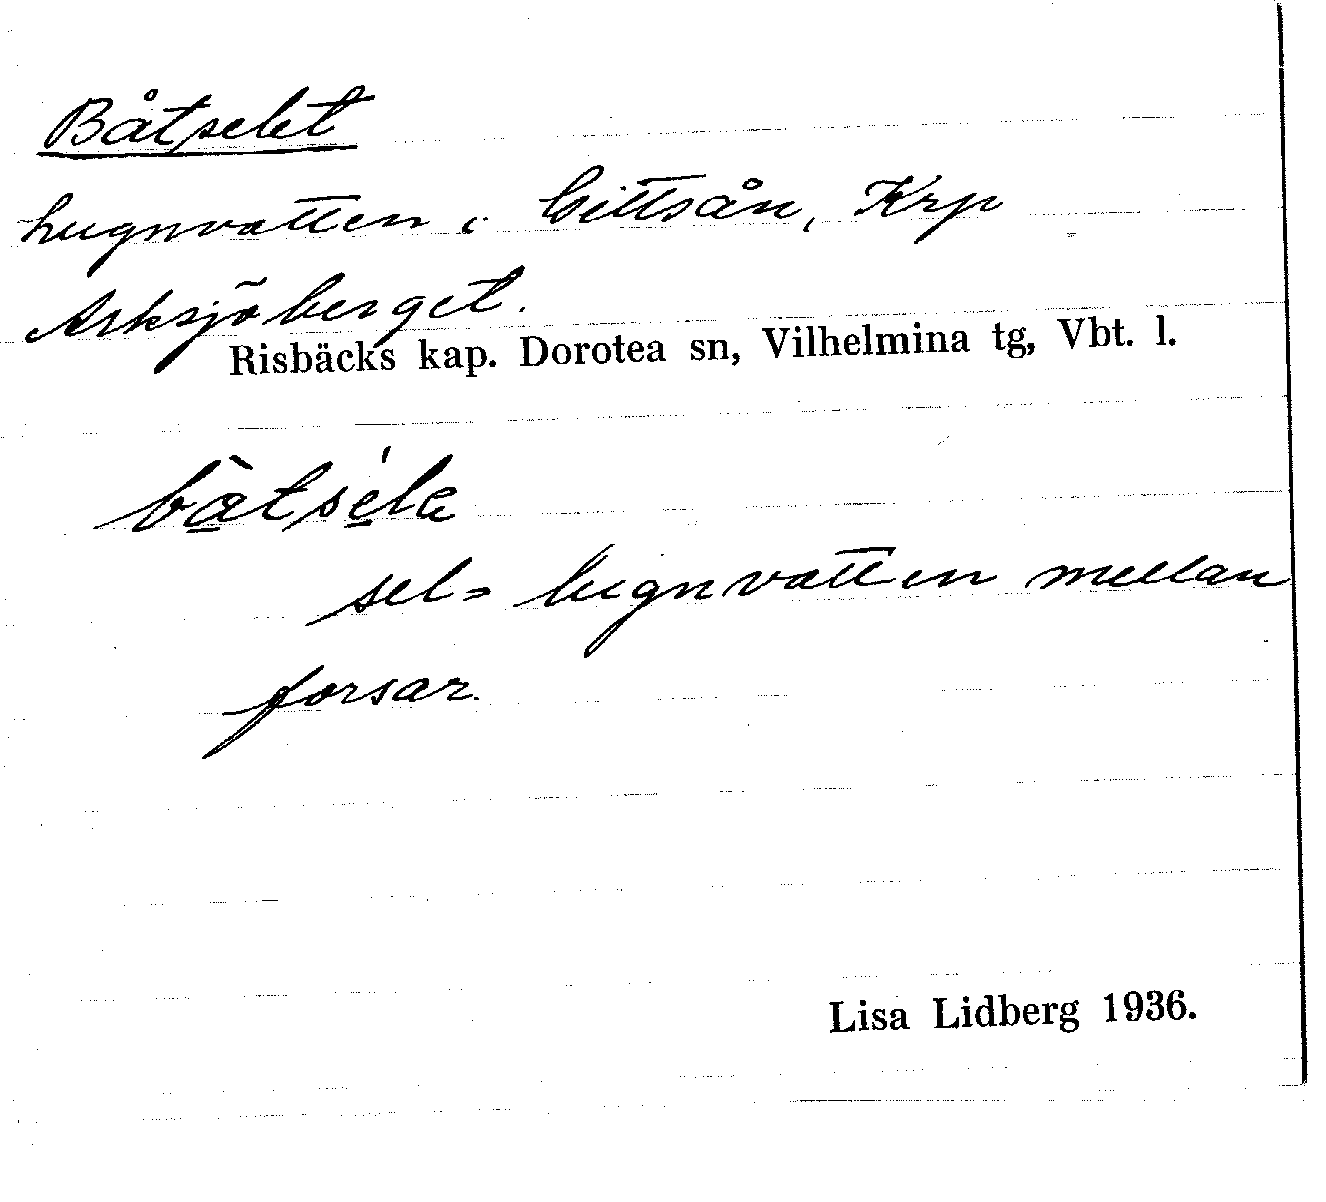 Båtselet
lugnvatten i Gittsån, Krp
Arksjöberget.
Risbäcks kap. Dorotea sn, Vilhelmina tg, Vbt. l.
bàtséla
sel = lugnvatten mellan
forsar.
Lisa Lidberg 1936.